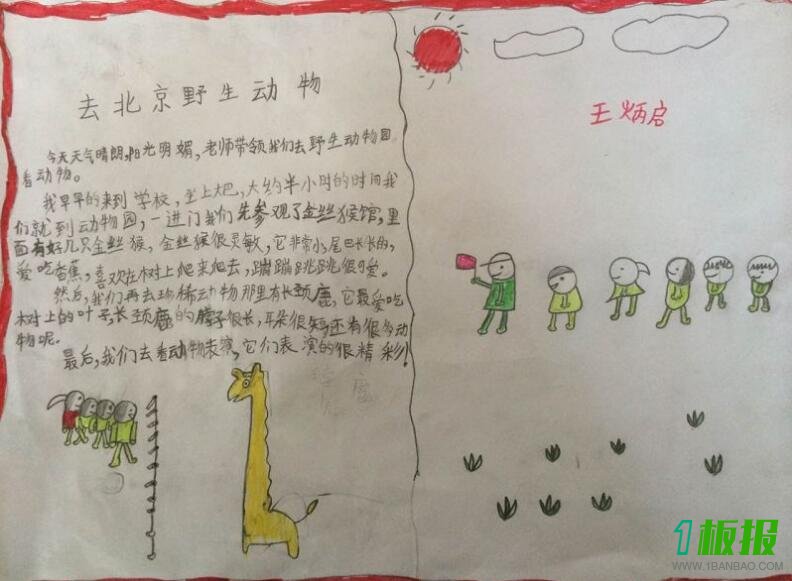 去北京野生动物
今天天气晴朗,阳光明媚,老师带领我们去野生动物园
看动物。
我早早的来到学校,坐上大巴,大约半小时的时间我
们就到动物园,一进门我们先参观了金丝猴馆,里
面有好几只金丝猴,金丝猴很灵敏,它非常小,尾巴长长的,
爱吃香蕉,喜欢在树上爬来爬去,蹦蹦跳跳很可爱。
然后,我们再去珍稀动物那里有长颈鹿,它最爱吃
树上的叶子,长颈鹿的脖子很长,耳朵很短,还有很多动
物呢。
最后,我们去看动物表演,它们表演的很精彩!
王炳启
1板报
WWW.1BANBAO.COM